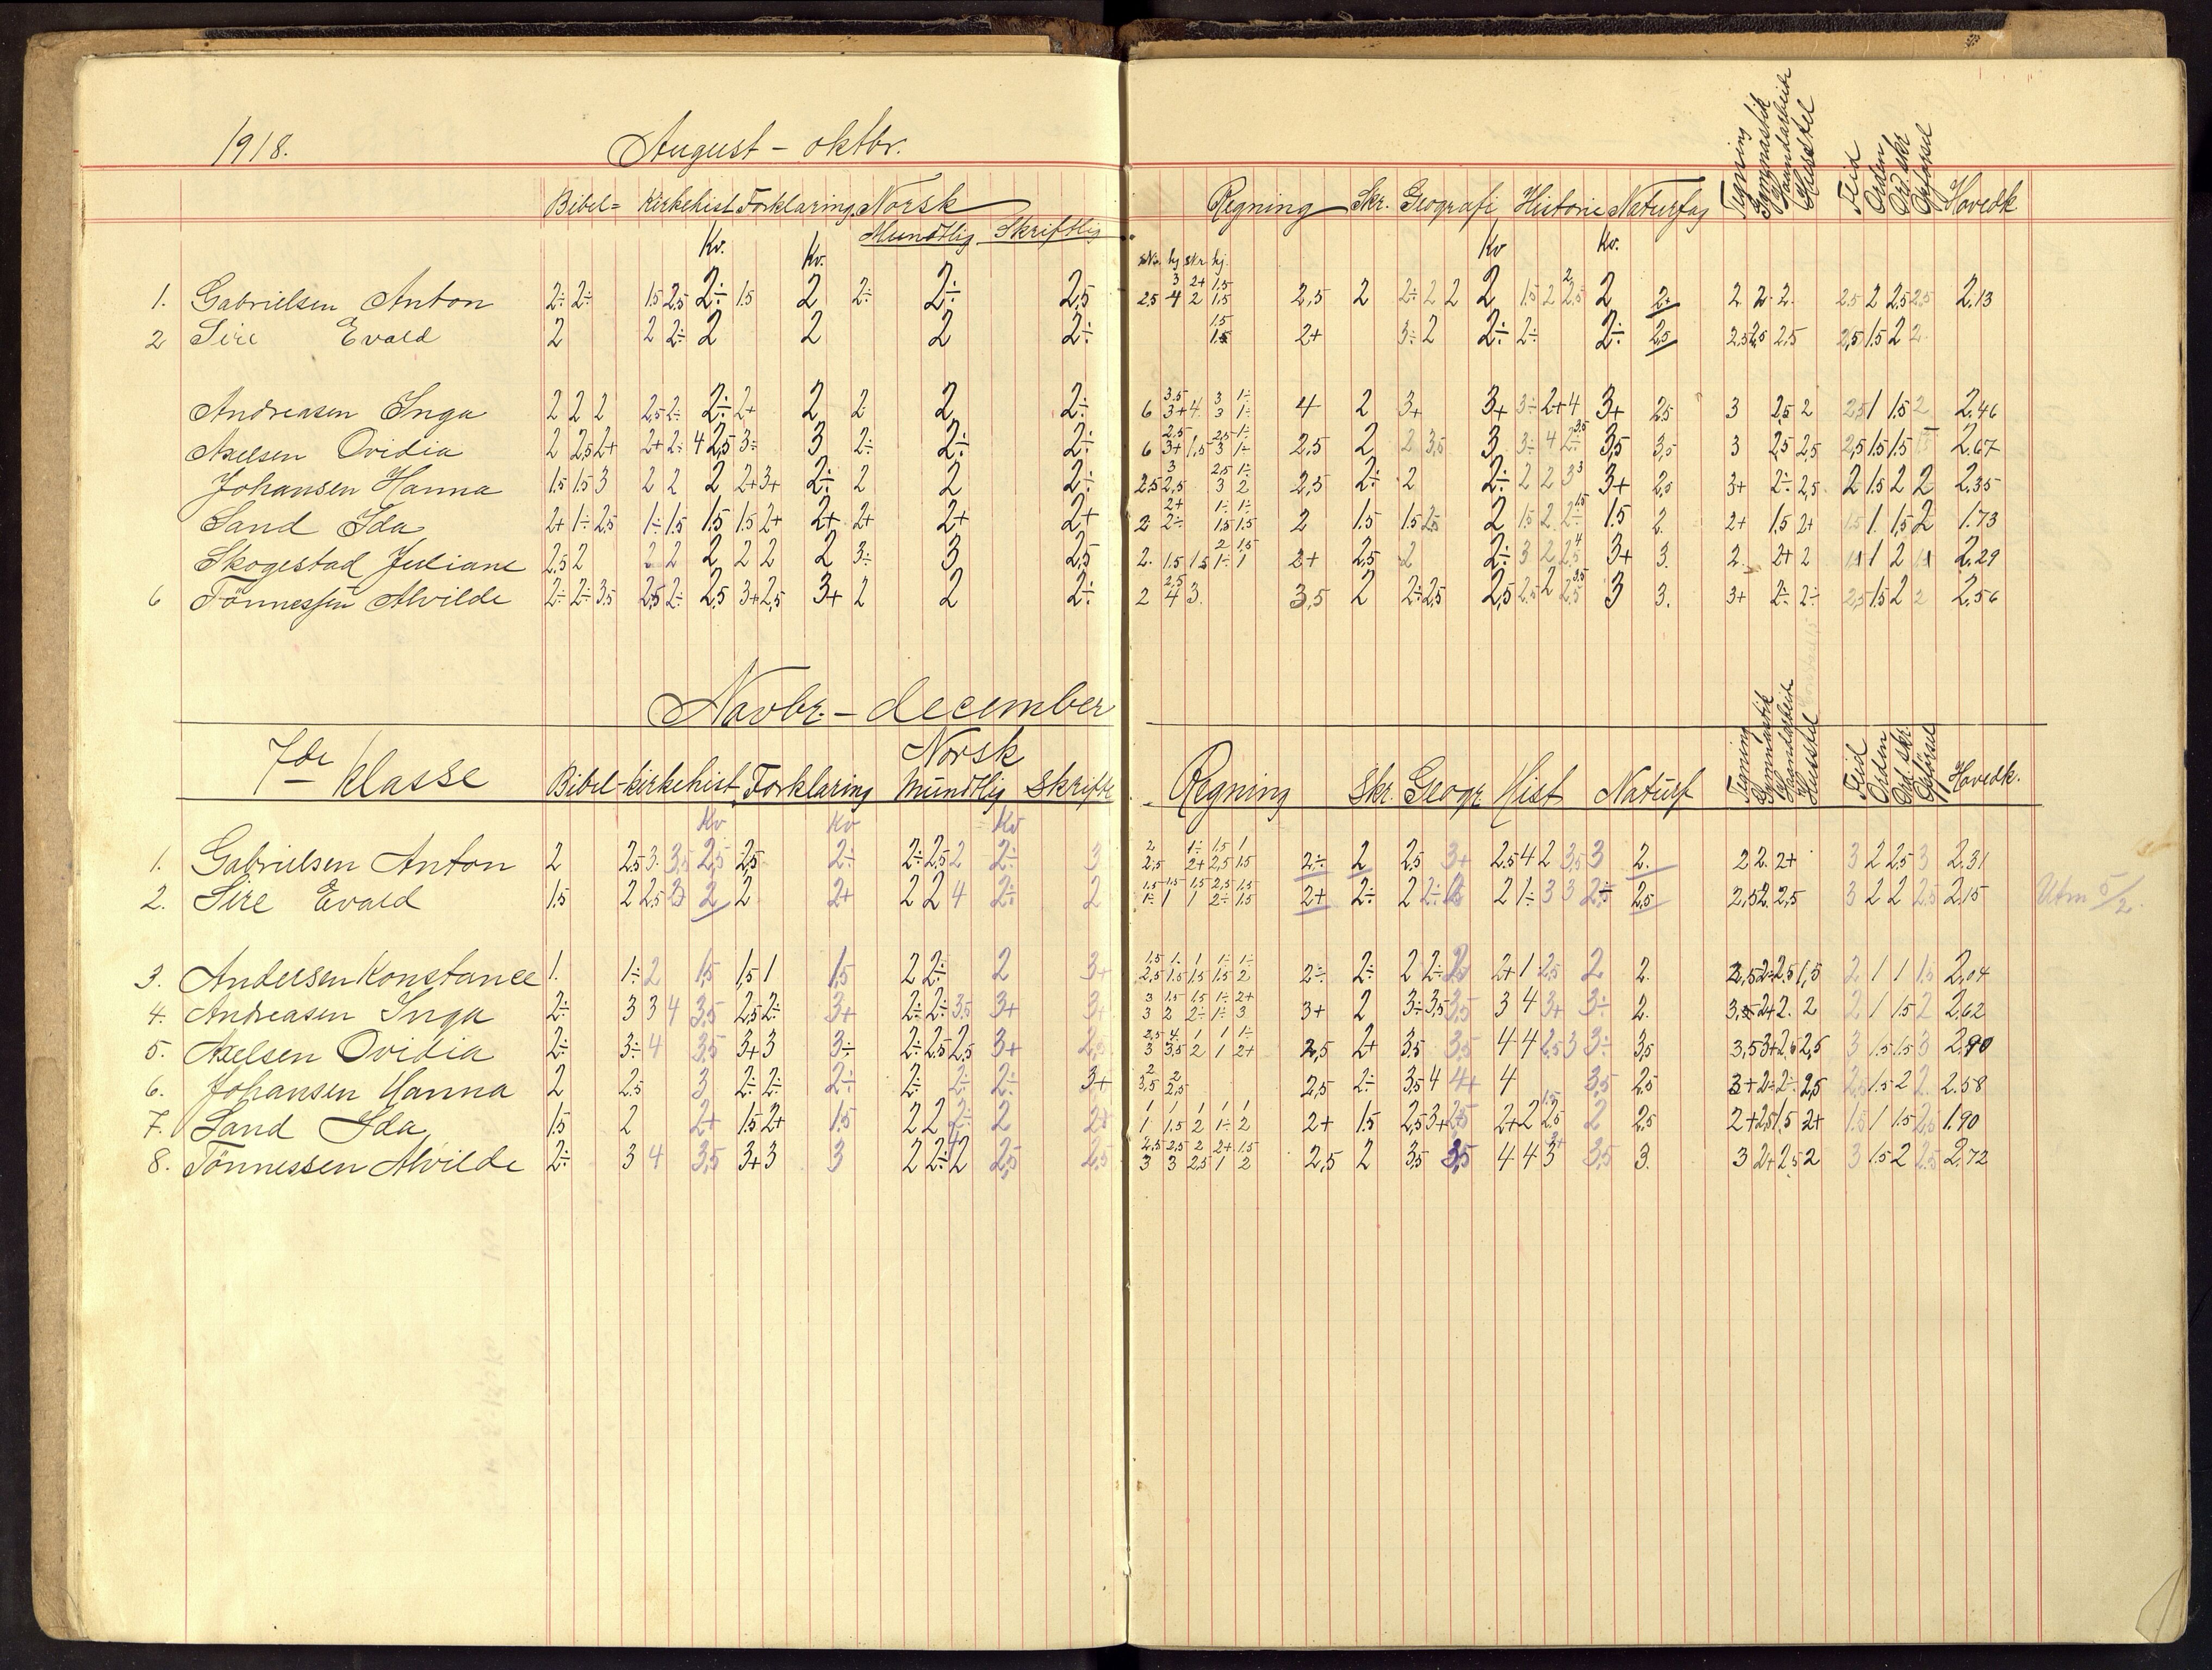 1918. August - oktbr.
Tegning Gymnastik Haandarbeide Husstel Flid Orden Ord. skr Opførsel
Bibel= Kirkehist Forklaring Norsk Regning Skr. Geografi Historie Naturfag Hovedk
Mundtlig Skriftlig
Kv. Kv. Kv Kv.
hj skr hj.
1. Gabrielsen Anton 2÷ 2÷ 1.5 2.5 2÷ 1.5 2 2÷ 2÷ 2,5 2,5 2 2÷ 2 2 2 1.5 2 2.5 2 2+ 2 2 2. 2.5 2 2.5 2.5 2.13
2 Sire Evald 2 2 2÷ 2 2 2 2÷ 2+ 3÷ 2 2÷ 2÷ 2÷ 2.5 2.5 2.5 2.5 2,5 1.5 2 2
Andreasen Inga 2 2 2 2.5 2÷ 2÷ 2+ 2 2 2 2÷ 6 3+ 4 3 1÷ 4 2 3+ 3+ 3÷ 2+ 4 3+ 2.5 3 2.5 2 2.5 1 1.5 2 2.46
Axelsen Ovidia 2 2,5 2+ 2+ 2÷ 4 2,5 3÷ 3 2÷ 2÷ 2÷ 6 3+ 1,5 3 1÷ 2,5 2 2 3,5 3 3÷ 4 2÷ 3,5 3,5 3 2.5 2,5 2,5 1.5 1.5 2.67
Johansen Hanna 1.5 1.5 3 2 2 2 2+ 3+ 2÷ 2 2 2÷ 2.5 2,5 3 2 2,5 2÷ 2 2÷ 2 2 3 3+ 2,5 3+ 2÷ 2,5 2 1.5 2 2 2.35
Sand Ida 2+ 1÷ 2.5 1÷ 1.5 1.5 1.5 2+ 2+ 2+ 2+ 2+ 2 2÷ 1.5 1.5 2 1.5 1.5 2.5 2 1.5 2 2÷ 1.5 2. 2+ 1.5 2+ 1.5 1 1.5 2 1.73
Skogestad Juliane 2.5 2 2 2 2 2 2 2 3÷ 3 2,5 2. 1.5 1.5 1÷ 1 2+ 2,5 2 2÷ 3 2 2.5 3+ 3. 2. 2+ 2 1 2 2.29
6 Tönnessen Alvilde 2÷ 2÷ 3.5 2.5 2÷ 2,5 3+ 2,5 3+ 2 2 2÷ 2 4 3. 3,5 2 2÷ 2,5 2,5 2.5 2 2.5 3 3. 3+ 2÷ 2÷ 2,5 1.5 2 2 2.56
Novbr. - december
Tegning Gymnastik Haandarbeide Husstel Flid Orden Ord. skr. Opførsel
7de klasse Bibel- kirkehist. Forklaring Norsk Mundtlig Skriftl Regning Skr. Geogr Hist Naturf Hovedk.
Kv Kv Kv
1. Gabrielsen Anton 2 2.5 3. 3,5 2,5 2,5 2÷ 2÷ 2,5 2 2÷ 3 2,5 2+ 2,5 1.5 2÷ 2 2.5 3+ 2.5 4 2 3,5 3 2. 2 2. 2+ 3 2 2.5 3 2.31
2. Sire Evald 1.5 2 2.5 3 2 2 2+ 2 2 4 2÷ 2 1÷ 1 1 2÷ 1.5 2+ 2÷ 2 2÷ 2 1÷ 3 3 2÷ 2,5 2,5 2. 2,5 3 2 2 2.5 2.15 Utm 5/2.
3. Andersen Konstance 1. 1÷ 2 1,5 1,5 1 1,5 2 2÷ 2 3+ 2,5 1.5 1.5 1.5 2 2÷ 2÷ 2 2÷ 2+ 1 2.5 2 2. 2,5 2÷ 2.5 1,5 2 1 1 1.5 2,04
4. Andreasen Inga 2÷ 3 3 4 3,5 2,5 2÷ 3+ 2÷ 2÷ 3,5 3+ 3+ 3 2 2÷ 1÷ 3 3+ 2 3÷ 3,5 3,5 3 4 3+ 3÷ 2. 3,5 2+ 2. 2 2 1 1.5 2 2,62
5. Axelsen Ovidia 2÷ 3÷ 4 3,5 3+ 3 3÷ 2÷ 2.5 2,5 3+ 2,5 3 3,5 2 1 2+ 2,5 2+ 3,5 3,5 4 4 2.5 3 3÷ 3,5 3,5 3+ 2. 2,5 3 1.5 1.5 3 2,90
6. Johansen Hanna 2 2.5 3 2÷ 2÷ 2÷ 2÷ 2÷ 2÷ 3+ 3,5 2,5 2,5 2÷ 3,5 4 4+ 4 3,5 2,5 3+ 2÷ 2÷ 2,5 2,5 1.5 2 2 2.58
7. Sand Ida 1.5 2 2+ 1.5 2+ 1.5 2 2 2÷ 2 2+ 1 1.5 2 1÷ 2 2+ 1.5 2,5 3+ 2,5 2+ 2 2,5 2 2,5 2+ 2,5 1.5 2+ 1.5 1 1.5 2,5 1.90
8. Tönnessen Alvilde 2÷ 3 4 3,5 3+ 3 3 2 2÷ 2 2,5 2,5 3 3 2,5 1 2 2,5 2 3,5 3,5 4 4 3 3,5 3. 3 2+ 2.5 2 3 1.5 2 2.5 2.72